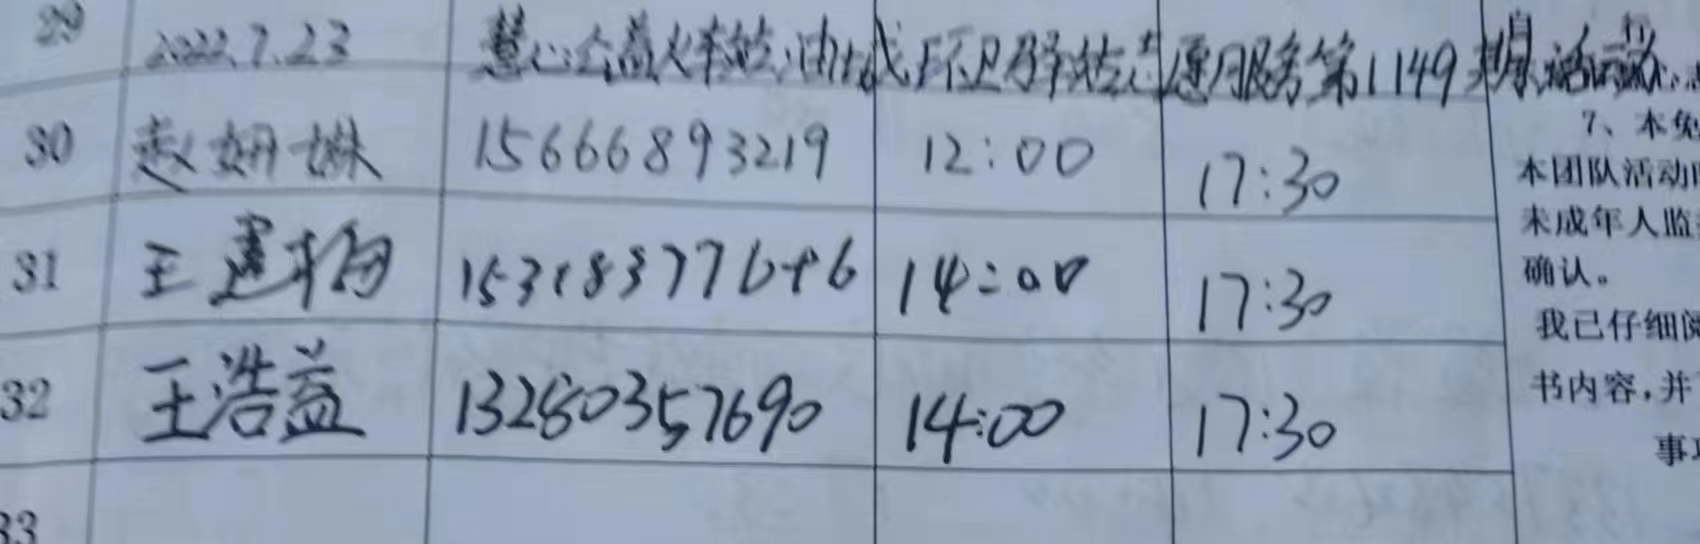 29 2022.7.23 慧心公益火车站、油城环卫驿站志愿服务第1149期活动
30 赵妍姝 15666893219 12:00 17:30
31 王建梅 14:00 17:30
32 王浩益 13280357690 14:00 17:30
33
7、本免
本团队活动
未成年人监
确认。
我已仔细阅
书内容,并
事项